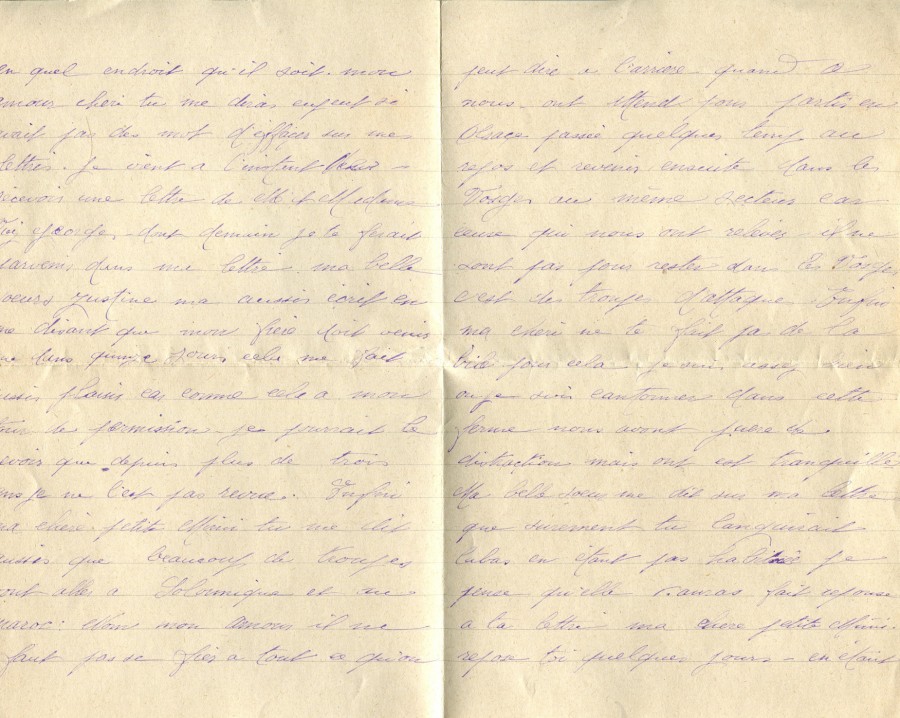 en quel endroit qu'il soit. mon
amour cheri tu me diras enfent si
avait pas des mot d'effacer sur mes
lettres. Je vient a l'instant
recevoir une lettre de Mr et Madame
George, dont demain je te ferait
parvenir dans ma lettre. ma belle
soeur Justine ma aussis écrit en
me disant que mon frère doit venir
dans quinze jours cela me fait
aussis plaisir car comme cela a mon
tour de permission je pourrait le
revoir que depuis plus de trois
ans je ne l'est pas revue. Enfin
ma chère petite Mimi tu me dit
aussis que beaucoup de troupes
sont alles a Salonnique et au
maroc: Non mon amour il ne
faut pas se fier a tout ce qu'on
peut dire a l'arrière quand a
nous. ont attend pour partir en
Alsace passé quelques temp au
repos et revenir ensuite dans les
Vosges au même secteur car
ceuse qui nous ont relever il ne
sont pas pour rester dans les Vosges
c'est des troupes d'attaque. Enfin
ma cherie ne te fait pa de la
bile pour cela je suis assez bien
ou je suis cantonner dans cette
ferme nous avont guere de
distraction mais ont est tranquille
Ma belle soeur me dit sur ma lettre
que surement tu languirait
labas en étant pas habituée je
pense qu'elle auras fait reponse
a ta lettre ma chere petite Mimi.
repose toi quelques jours - en étant